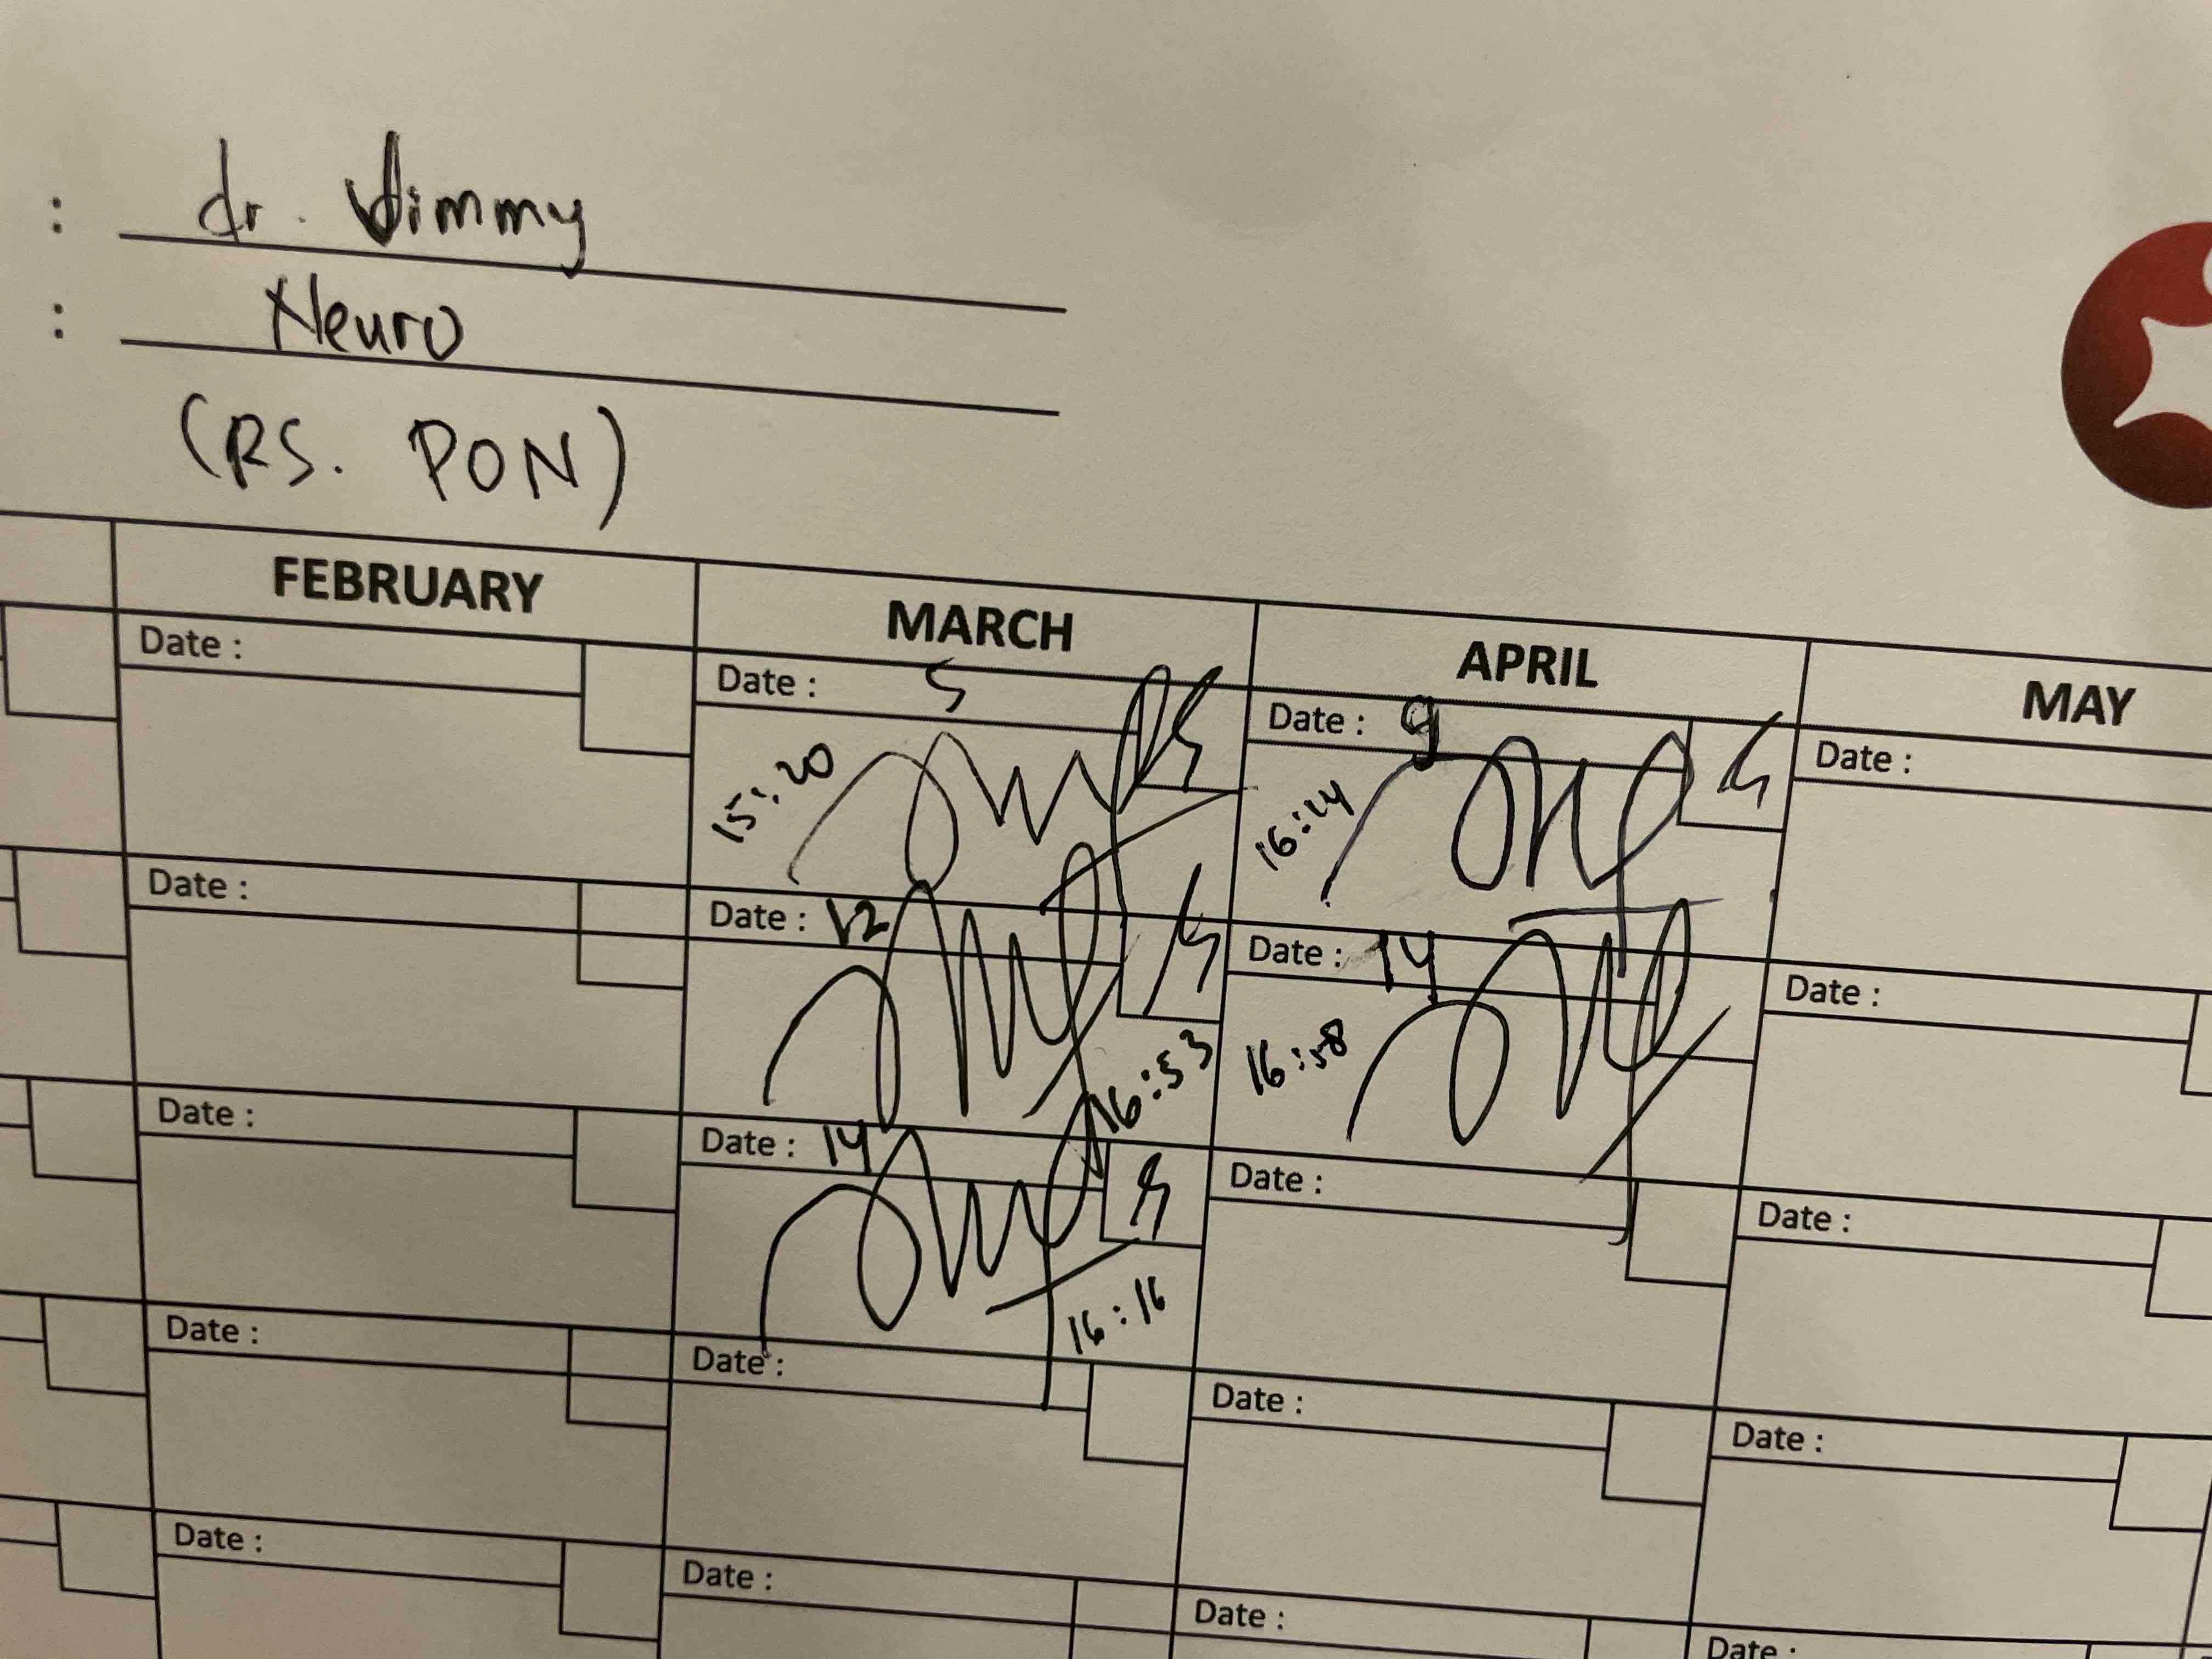 : dr. Jimmy
: Neuro
(RS. PON)
FEBRUARY MARCH APRIL MAY
Date : Date : 5 Date : 9 Date :
15:20 16:24
Date : Date : 12 Date : 14 Date :
16:53 16:58
Date : Date : 14 Date : Date :
16:16
Date : Date : Date : Date :
Date : Date : Date : Date :